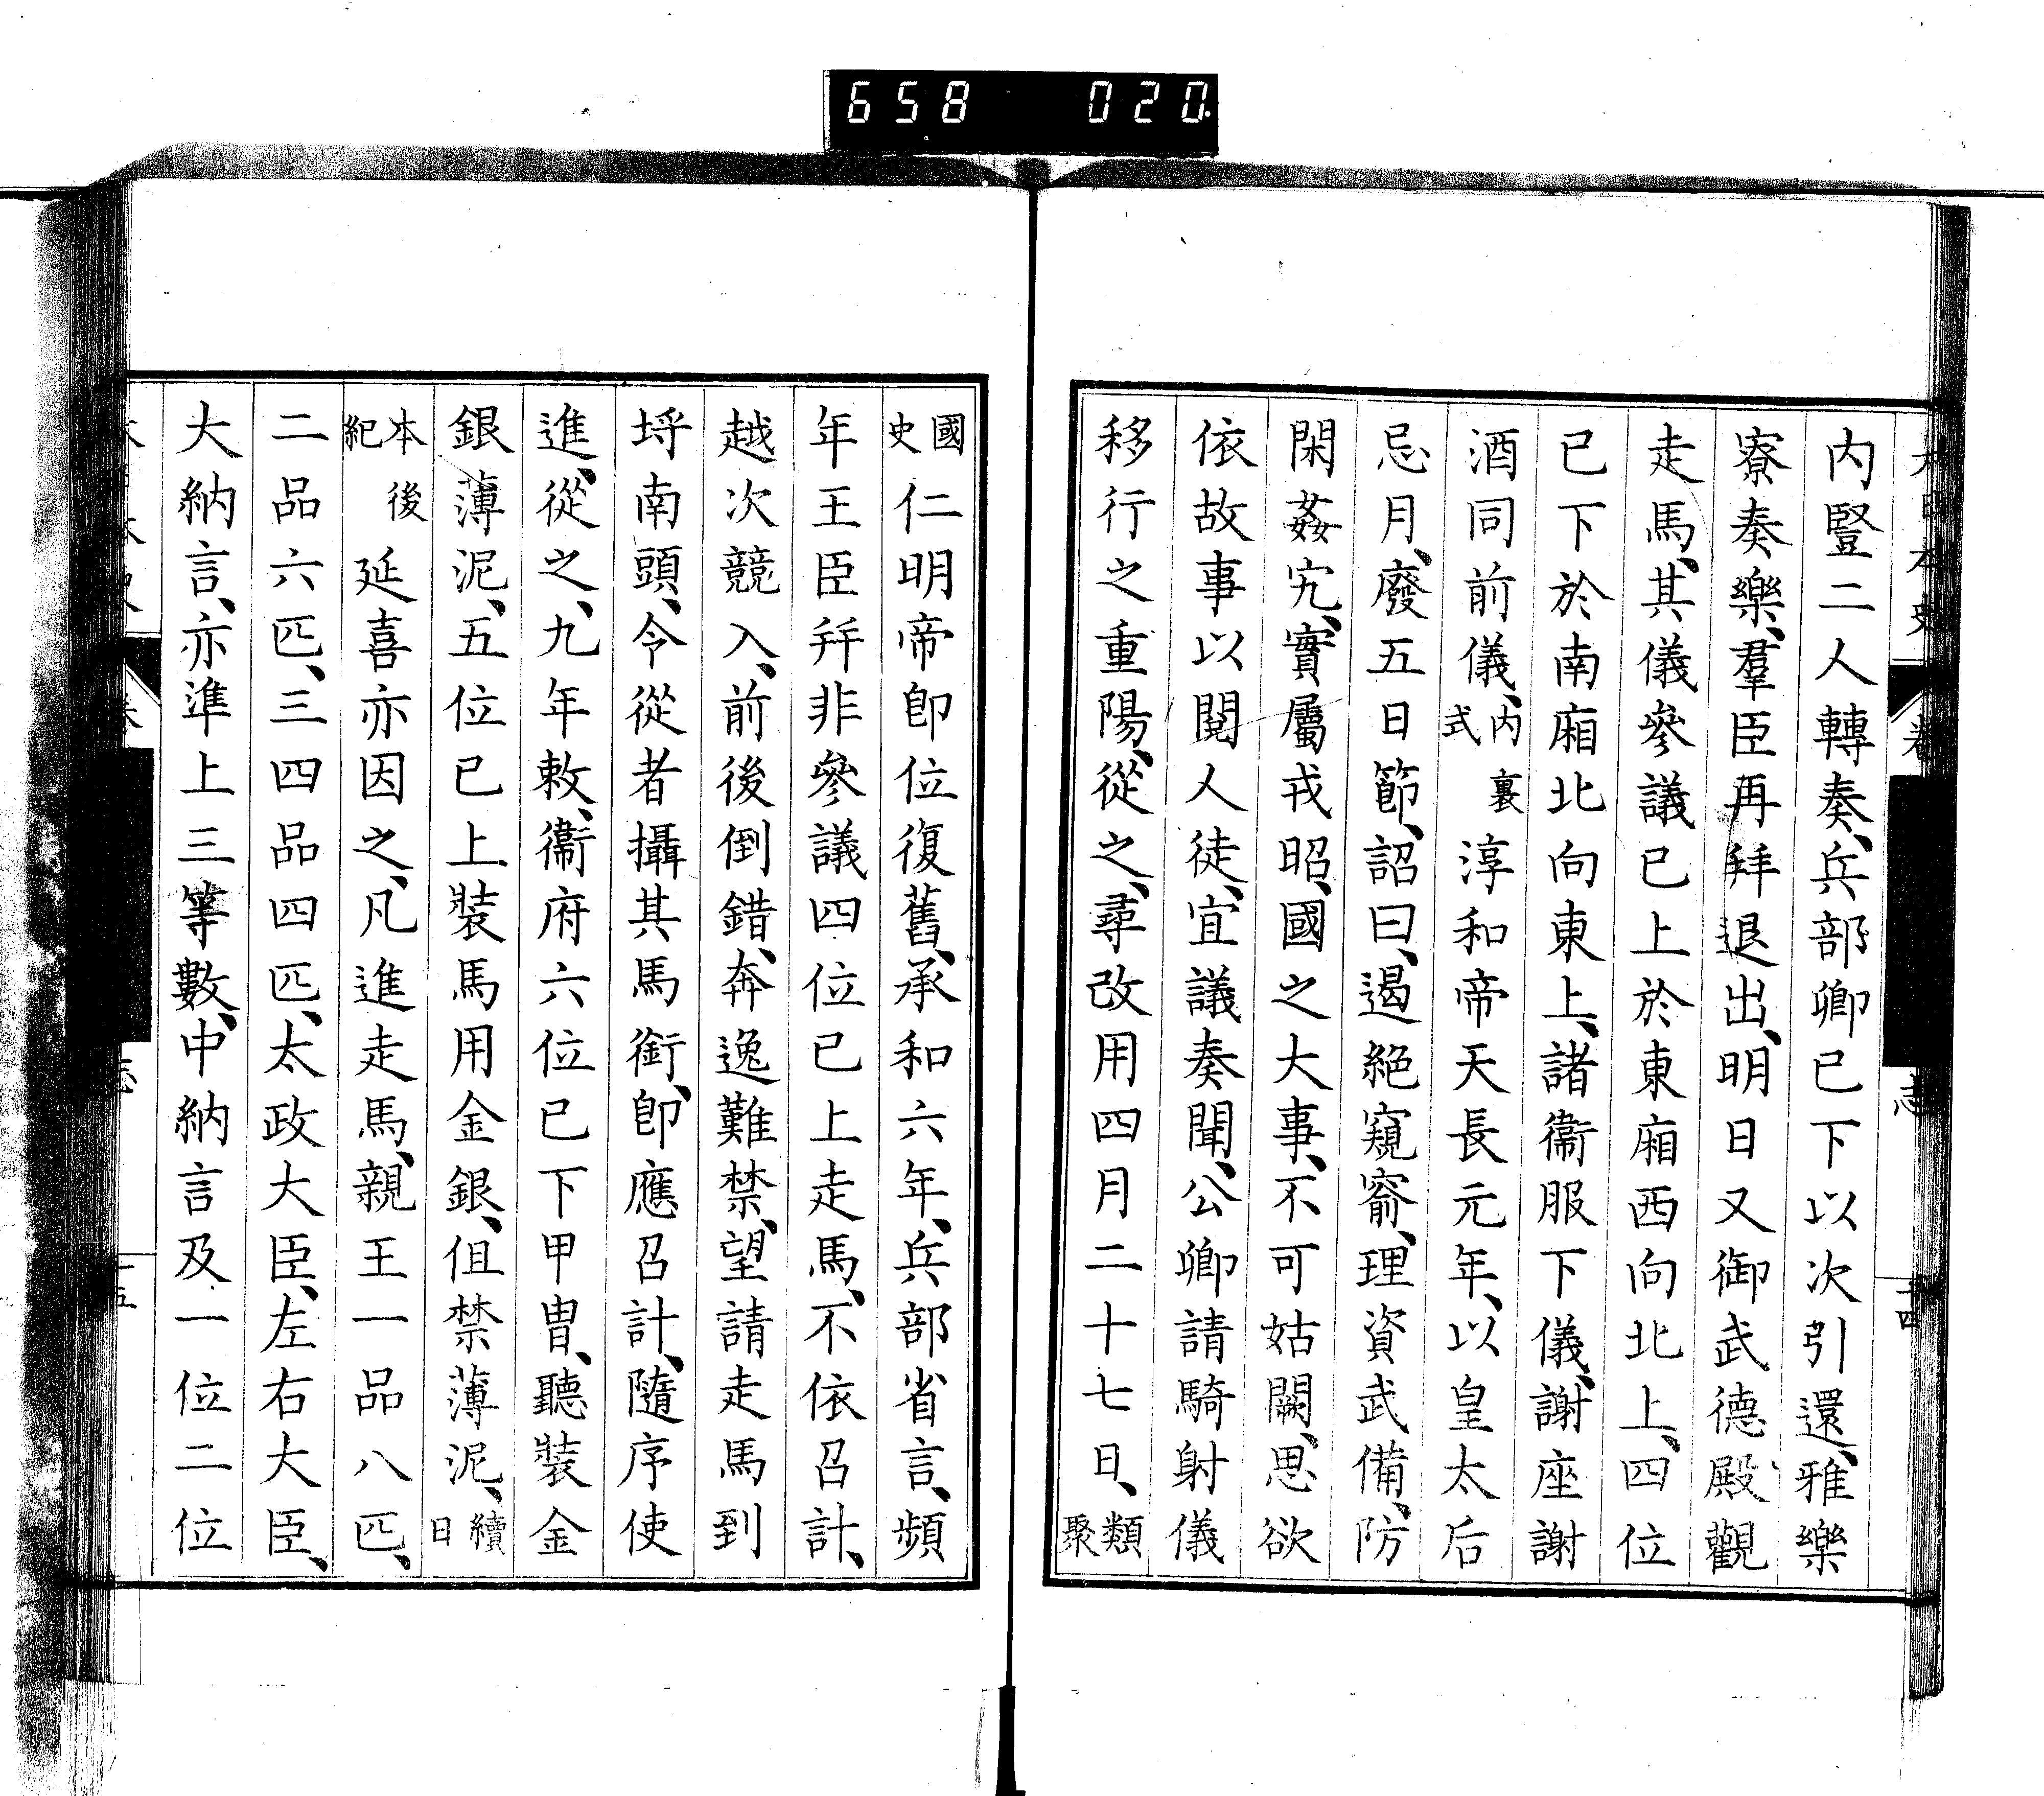 658 020
内豎二人轉奏、兵部卿已下以次引還、雅樂
寮奏樂、羣臣再拜退出、明日又御武德殿觀
走馬、其儀參議已上於東廂西向北上、四位
已下於南廂北向東上、諸衞服下儀、謝座謝
酒同前儀、内裏式淳和帝天長元年、以皇太后
忌月、廢五日節、詔曰、遏絕窺窬、理資武備、防
閑姦宄、實屬戎昭、國之大事、不可姑闕、思欲
依故事以閱人徒、宜議奏聞、公卿請騎射儀
移行之重陽、從之、尋改用四月二十七日、類聚
國史仁明帝卽位復舊、承和六年、兵部省言、頻
年王臣幷非參議四位已上走馬、不依召計、
越次競入、前後倒錯、奔逸難禁、望請走馬到
埒南頭、令從者攝其馬銜、卽應召計、隨序使
進、從之、九年敕、衞府六位已下甲冑、聽裝金
銀薄泥、五位已上裝馬用金銀、但禁薄泥、續日
本後紀延喜亦因之、凡進走馬、親王一品八匹、
二品六匹、三四品四匹、太政大臣、左右大臣、
大納言、亦準上三等數、中納言及一位二位